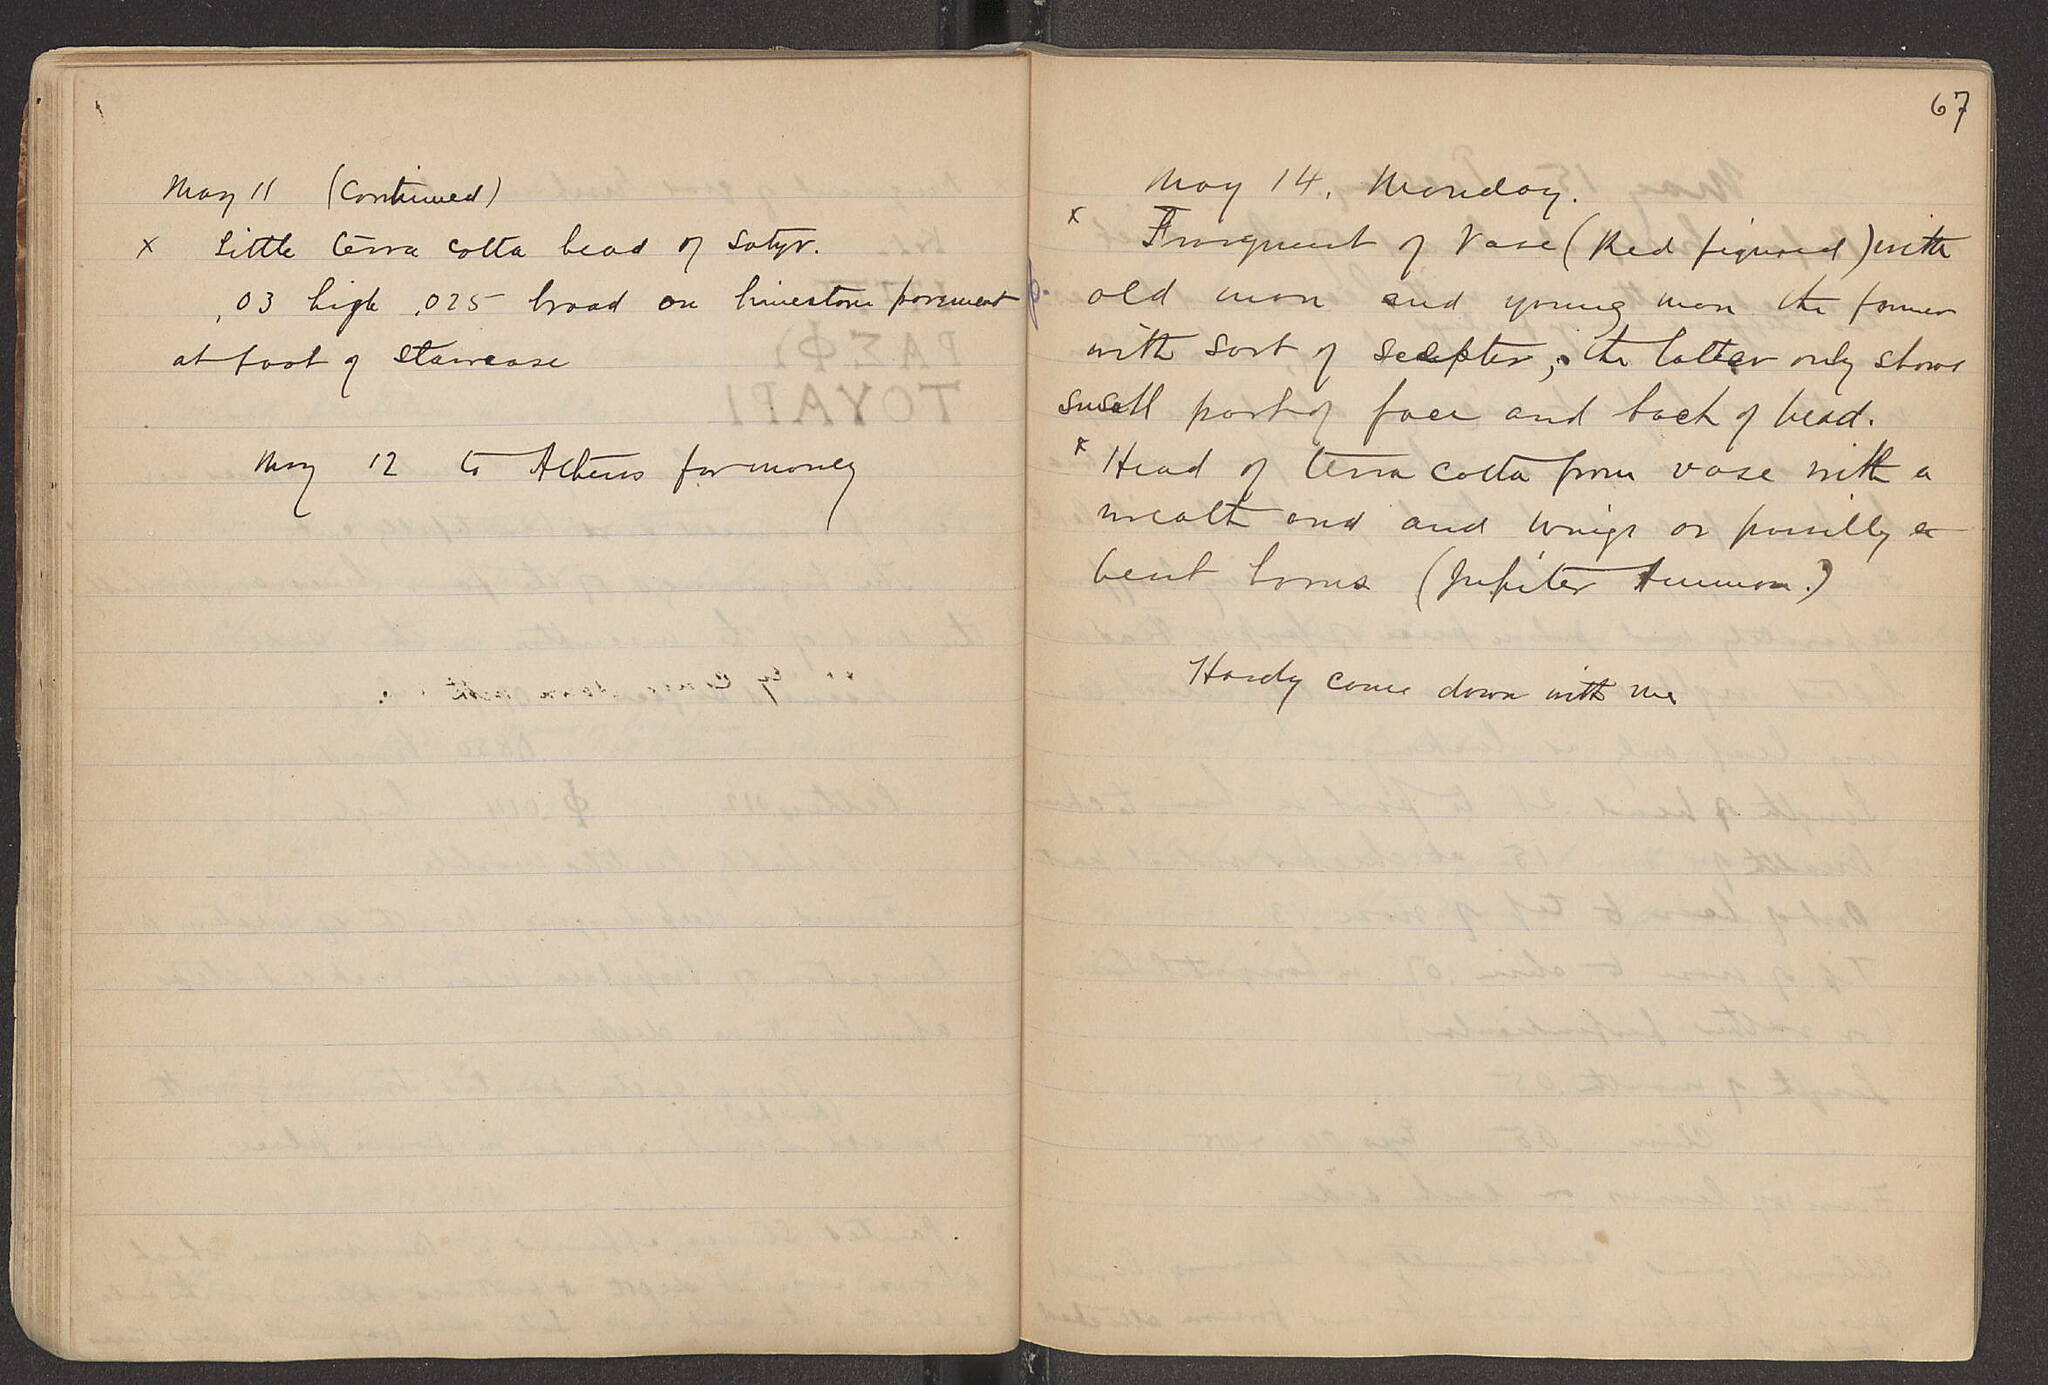 May 11 (continued)
x Little terra cotta head of Satyr.
.03 high .025 broad on limestone pavement
at foot of staircase
May 12 to Athens for money
67
May 14. Monday.
x Fragment of Vase (Red figured) with
old man and young man the former
with sort of scepter, the latter only shows
small part of face and back of head.
x Head of terra cotta from vase with a
wreath and and wings or possibly a
bent horns (Jupiter Ammon?)
Hardy came down with me